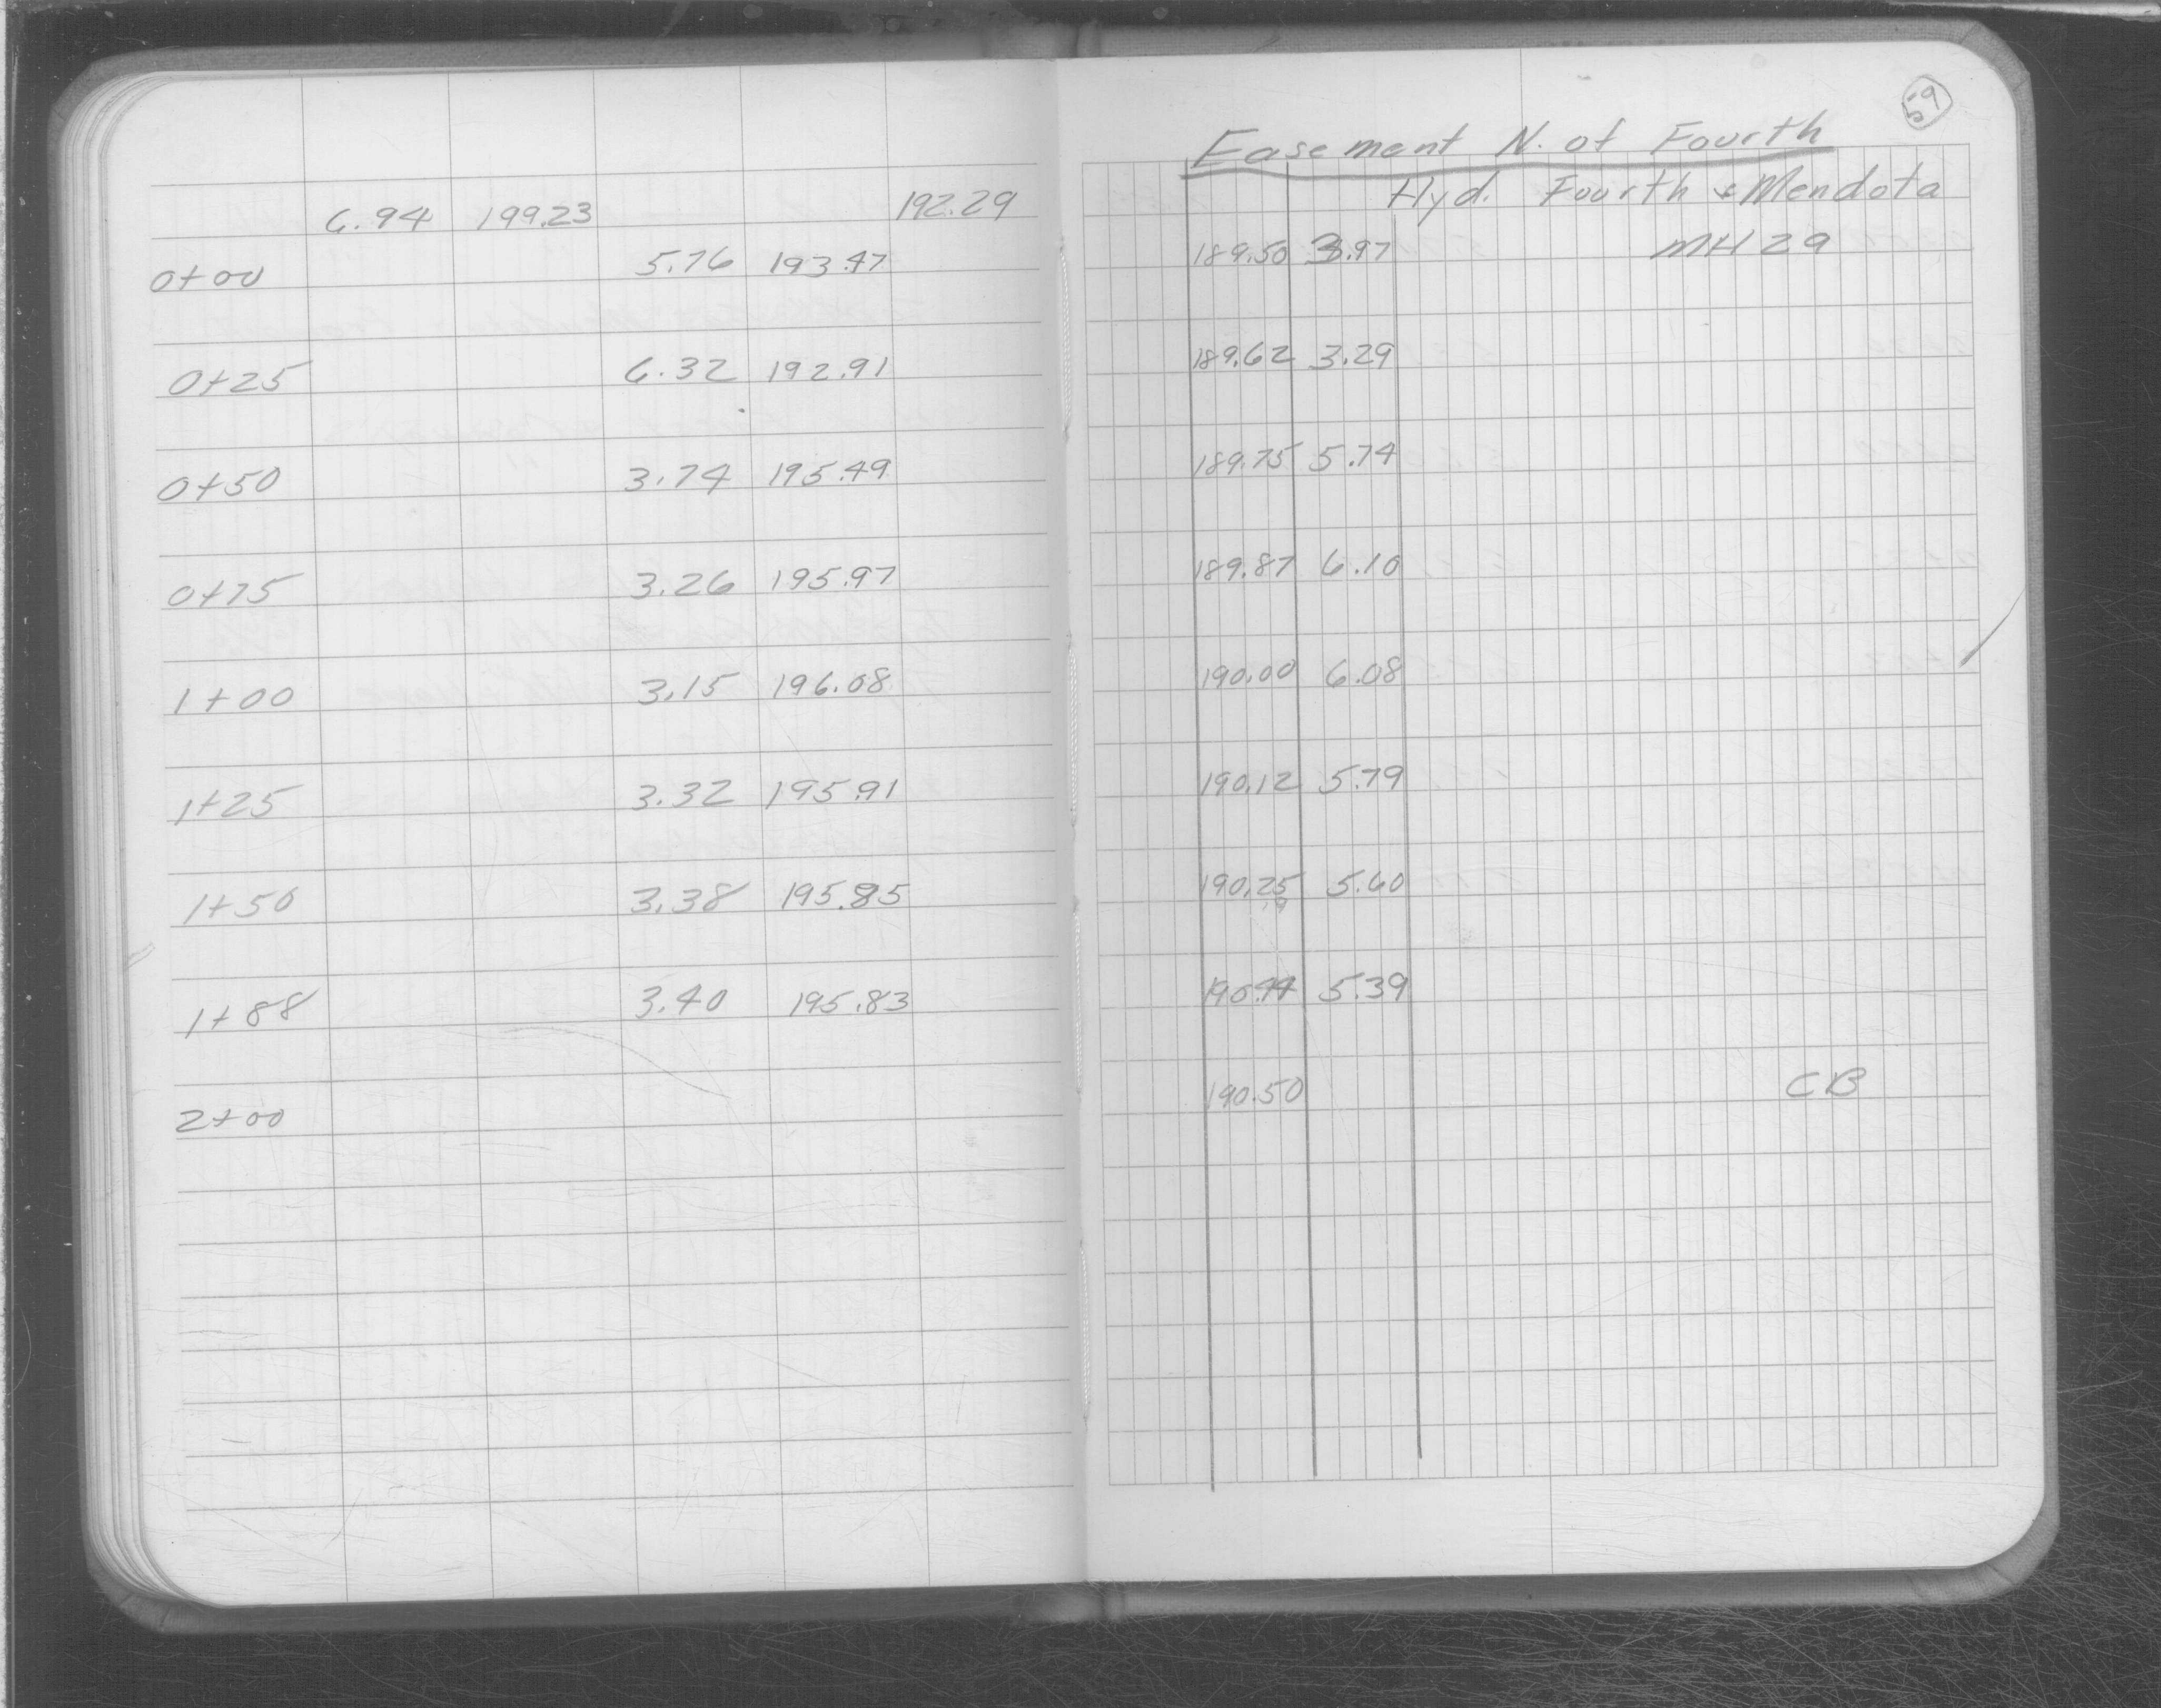 59
Easement N. of Fourth
6.94 199.23 192.29 Hyd. Fourth & Mendota
0+00 5.76 193.47 189.50 3.97 MH 29
0+25 6.32 192.91 189.62 3.29
0+50 3.74 195.49 189.75 5.74
0+75 3.26 195.97 189.87 6.10
1+00 3.15 196.08 190.00 6.08
1+25 3.32 195.91 190.12 5.79
1+50 3.38 195.85 190.25 5.60
1+88 3.40 195.83 190.44 5.39
2+00 190.50 CB